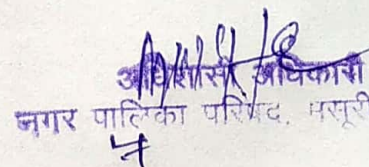 अधिशासी अधिकारी
नगर पालिका परिषद, मसूरी